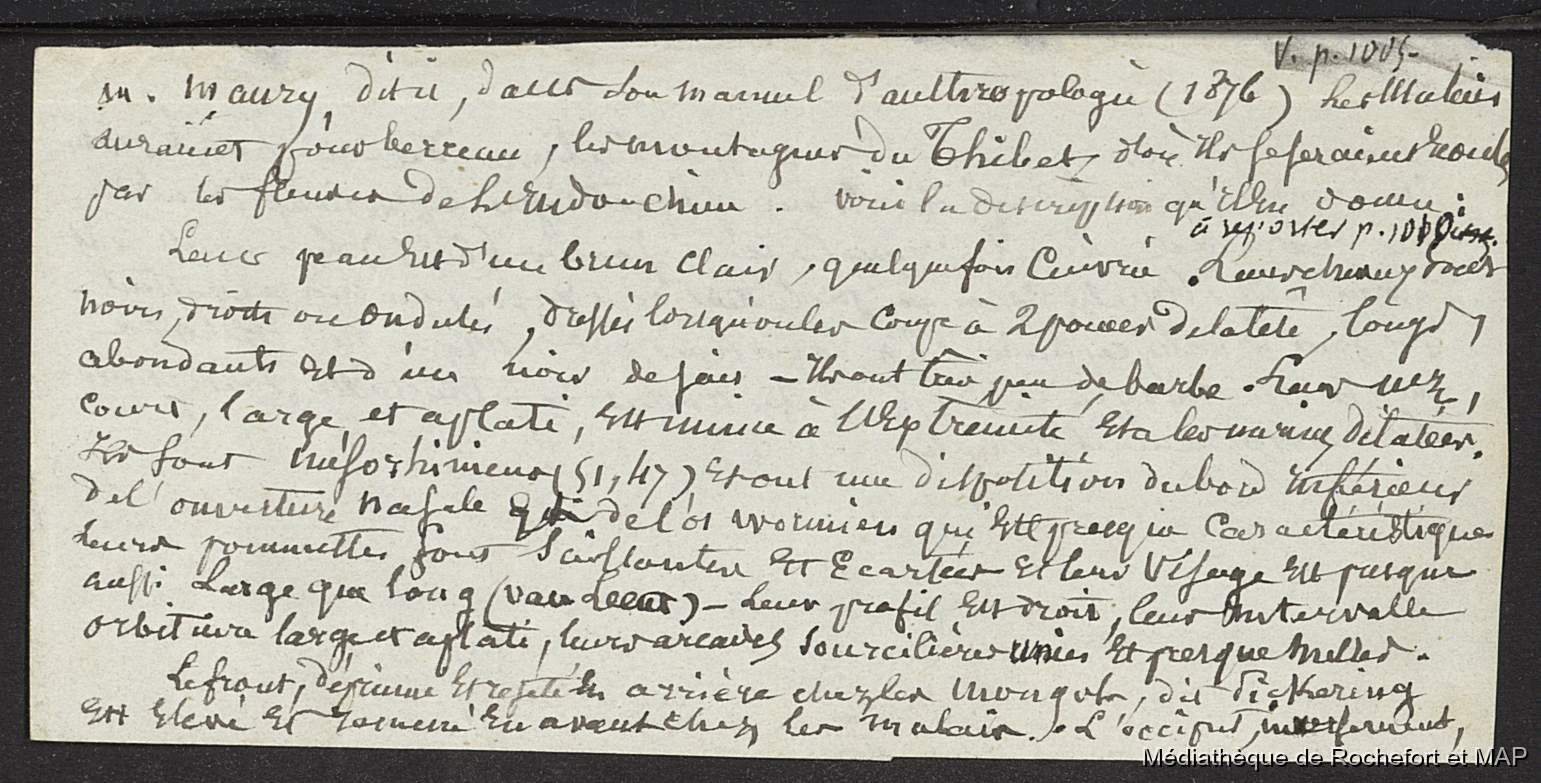 V. p. 1005-
M. Maury dit-il, dans son manuel d'anthropologie (1876) les Malais
auraient pour berceau, les montagnes du Thibet, d'où ils se seraient
par les fleuves de l'Indo-chine. Voici la description qu'il en donne :
à reporter p.
Leur peau est d'un brun clair, quelquefois cuivré. Leurs cheveux sont
noirs, droits ou ondulés, dressés lorsqu'on les coupe à 2 pouces de la tête, longs,
abondants et d'un noir de jais - Ils ont très peu de barbe. Leur nez,
court, large et aplati, est mince à l'extrémité et a les narines dilatées.
Ils sont mésorhiniens (51,47) et ont une disposition du bord inférieur
de l'ouverture nasale et de l'os wormien qui est presque caractéristique
leurs pommettes sont saillantes et écartées et leur visage est presque
aussi large que long (van Leent) - Leur profil est droit, leur intervalle
orbitaire large et aplati, leurs arcades sourcilières unies et presque nulles.
Le front, déprimé et rejeté en arrière chez les Mongols, dit Pickering
est élevé et ramené en avant chez les Malais. L'occiput, inversement,
Médiathèque de Rochefort et MAP